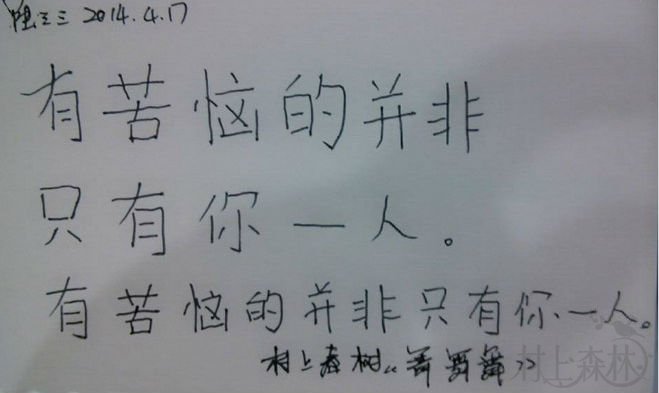 陆三三 2014.4.17
有苦恼的并非
只有你一人。
有苦恼的并非只有你一人。
村上春树《舞舞舞》
村上森林